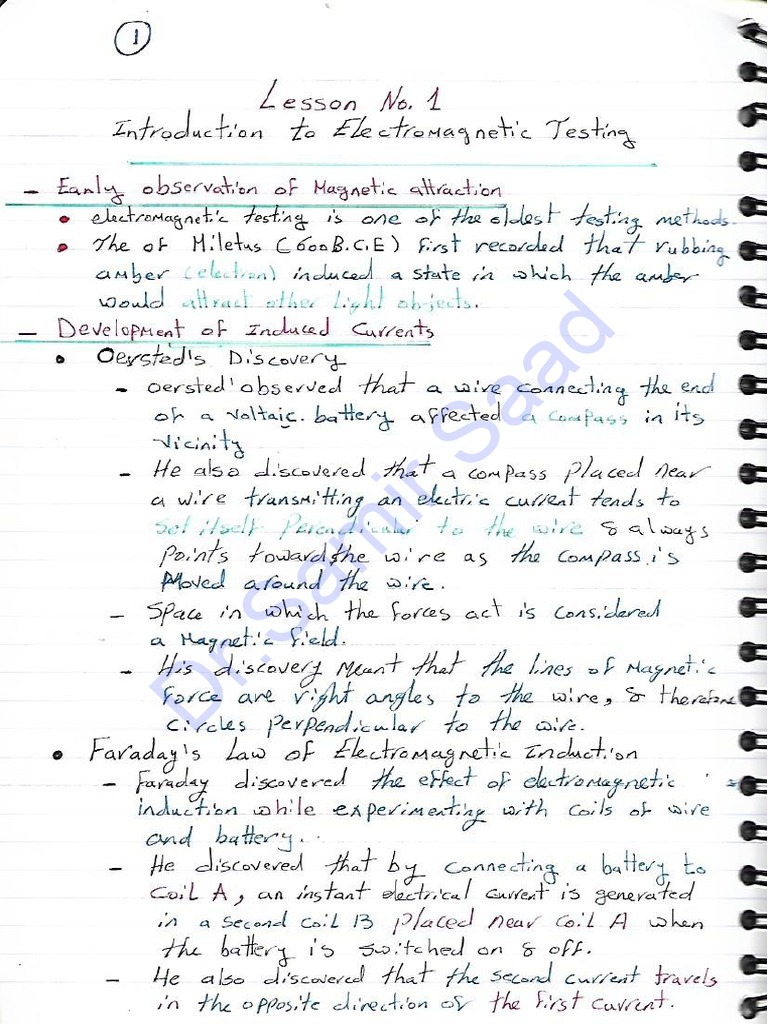 1
Lesson No. 1
Introduction to Electromagnetic Testing
- Early observation of Magnetic attraction
• electromagnetic testing is one of the oldest testing methods.
• The of Miletus (600 B.C.E) first recorded that rubbing
amber (electron) induced a state in which the amber
would attract other light objects.
- Development of Induced Currents
• Oersted's Discovery
- Oersted' observed that a wire connecting the end
of a voltaic battery affected a compass in its
vicinity
- He also discovered that a compass placed near
a wire transmitting an electric current tends to
set itself Percendicular to the wire & always
points toward the wire as the compass is
moved around the wire.
- Space in which the forces act is considered
a Magnetic field.
- His discovery meant that the lines of magnetic
force are right angles to the wire, & therefore
circles perpendicular to the wire.
• Faraday's Law of Electromagnetic Induction
- Faraday discovered the effect of electromagnetic
induction while experimenting with coils of wire
and battery..
- He discovered that by connecting a battery to
Coil A, an instant electrical current is generated
in a second coil B placed near coil A when
the battery is switched on & off.
- He also discovered that the second current travels
in the opposite direction of the first current.
Dr. Samir Saad